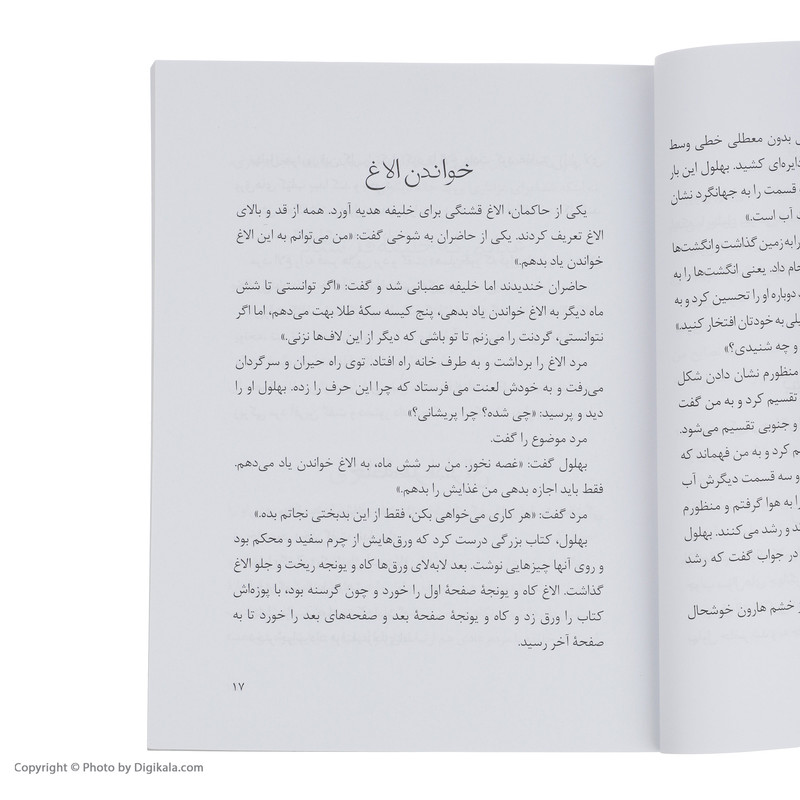 ل بدون معطلی خطی وسط
دایره‌ای کشید. بهلول این بار
قسمت را به جهانگرد نشان
آب است.»
را به زمین گذاشت و انگشت‌ها
جام داد. یعنی انگشت‌ها را به
دوباره او را تحسین کرد و به
یلی به خودتان افتخار کنید.»
و چه شنیدی؟»
منظورم نشان دادن شکل
تقسیم کرد و به من گفت
و جنوبی تقسیم می‌شود.
م کرد و به من فهماند که
و سه قسمت دیگرش آب
را به هوا گرفتم و منظورم
ند و رشد می‌کنند. بهلول
در جواب گفت که رشد
ز خشم هارون خوشحال
خواندن الاغ
یکی از حاکمان، الاغ قشنگی برای خلیفه هدیه آورد. همه از قد و بالای
الاغ تعریف کردند. یکی از حاضران به شوخی گفت: «من می‌توانم به این الاغ
خواندن یاد بدهم.»
حاضران خندیدند اما خلیفه عصبانی شد و گفت: «اگر توانستی تا شش
ماه دیگر به الاغ خواندن یاد بدهی، پنج کیسه سکهٔ طلا بهت می‌دهم، اما اگر
نتوانستی، گردنت را می‌زنم تا تو باشی که دیگر از این لاف‌ها نزنی.»
مرد الاغ را برداشت و به طرف خانه راه افتاد. توی راه حیران و سرگردان
می‌رفت و به خودش لعنت می فرستاد که چرا این حرف را زده. بهلول او را
دید و پرسید: «چی شده؟ چرا پریشانی؟»
مرد موضوع را گفت.
بهلول گفت: «غصه نخور. من سر شش ماه، به الاغ خواندن یاد می‌دهم.
فقط باید اجازه بدهی من غذایش را بدهم.»
مرد گفت: «هر کاری می‌خواهی بکن، فقط از این بدبختی نجاتم بده.»
بهلول، کتاب بزرگی درست کرد که ورق‌هایش از چرم سفید و محکم بود
و روی آنها چیزهایی نوشت. بعد لابه‌لای ورق‌ها کاه و یونجه ریخت و جلو الاغ
گذاشت. الاغ کاه و یونجهٔ صفحهٔ اول را خورد و چون گرسنه بود، با پوزه‌اش
کتاب را ورق زد و کاه و یونجهٔ صفحهٔ بعد و صفحه‌های بعد را خورد تا به
صفحهٔ آخر رسید.
۱۷
Copyright © Photo by Digikala.com